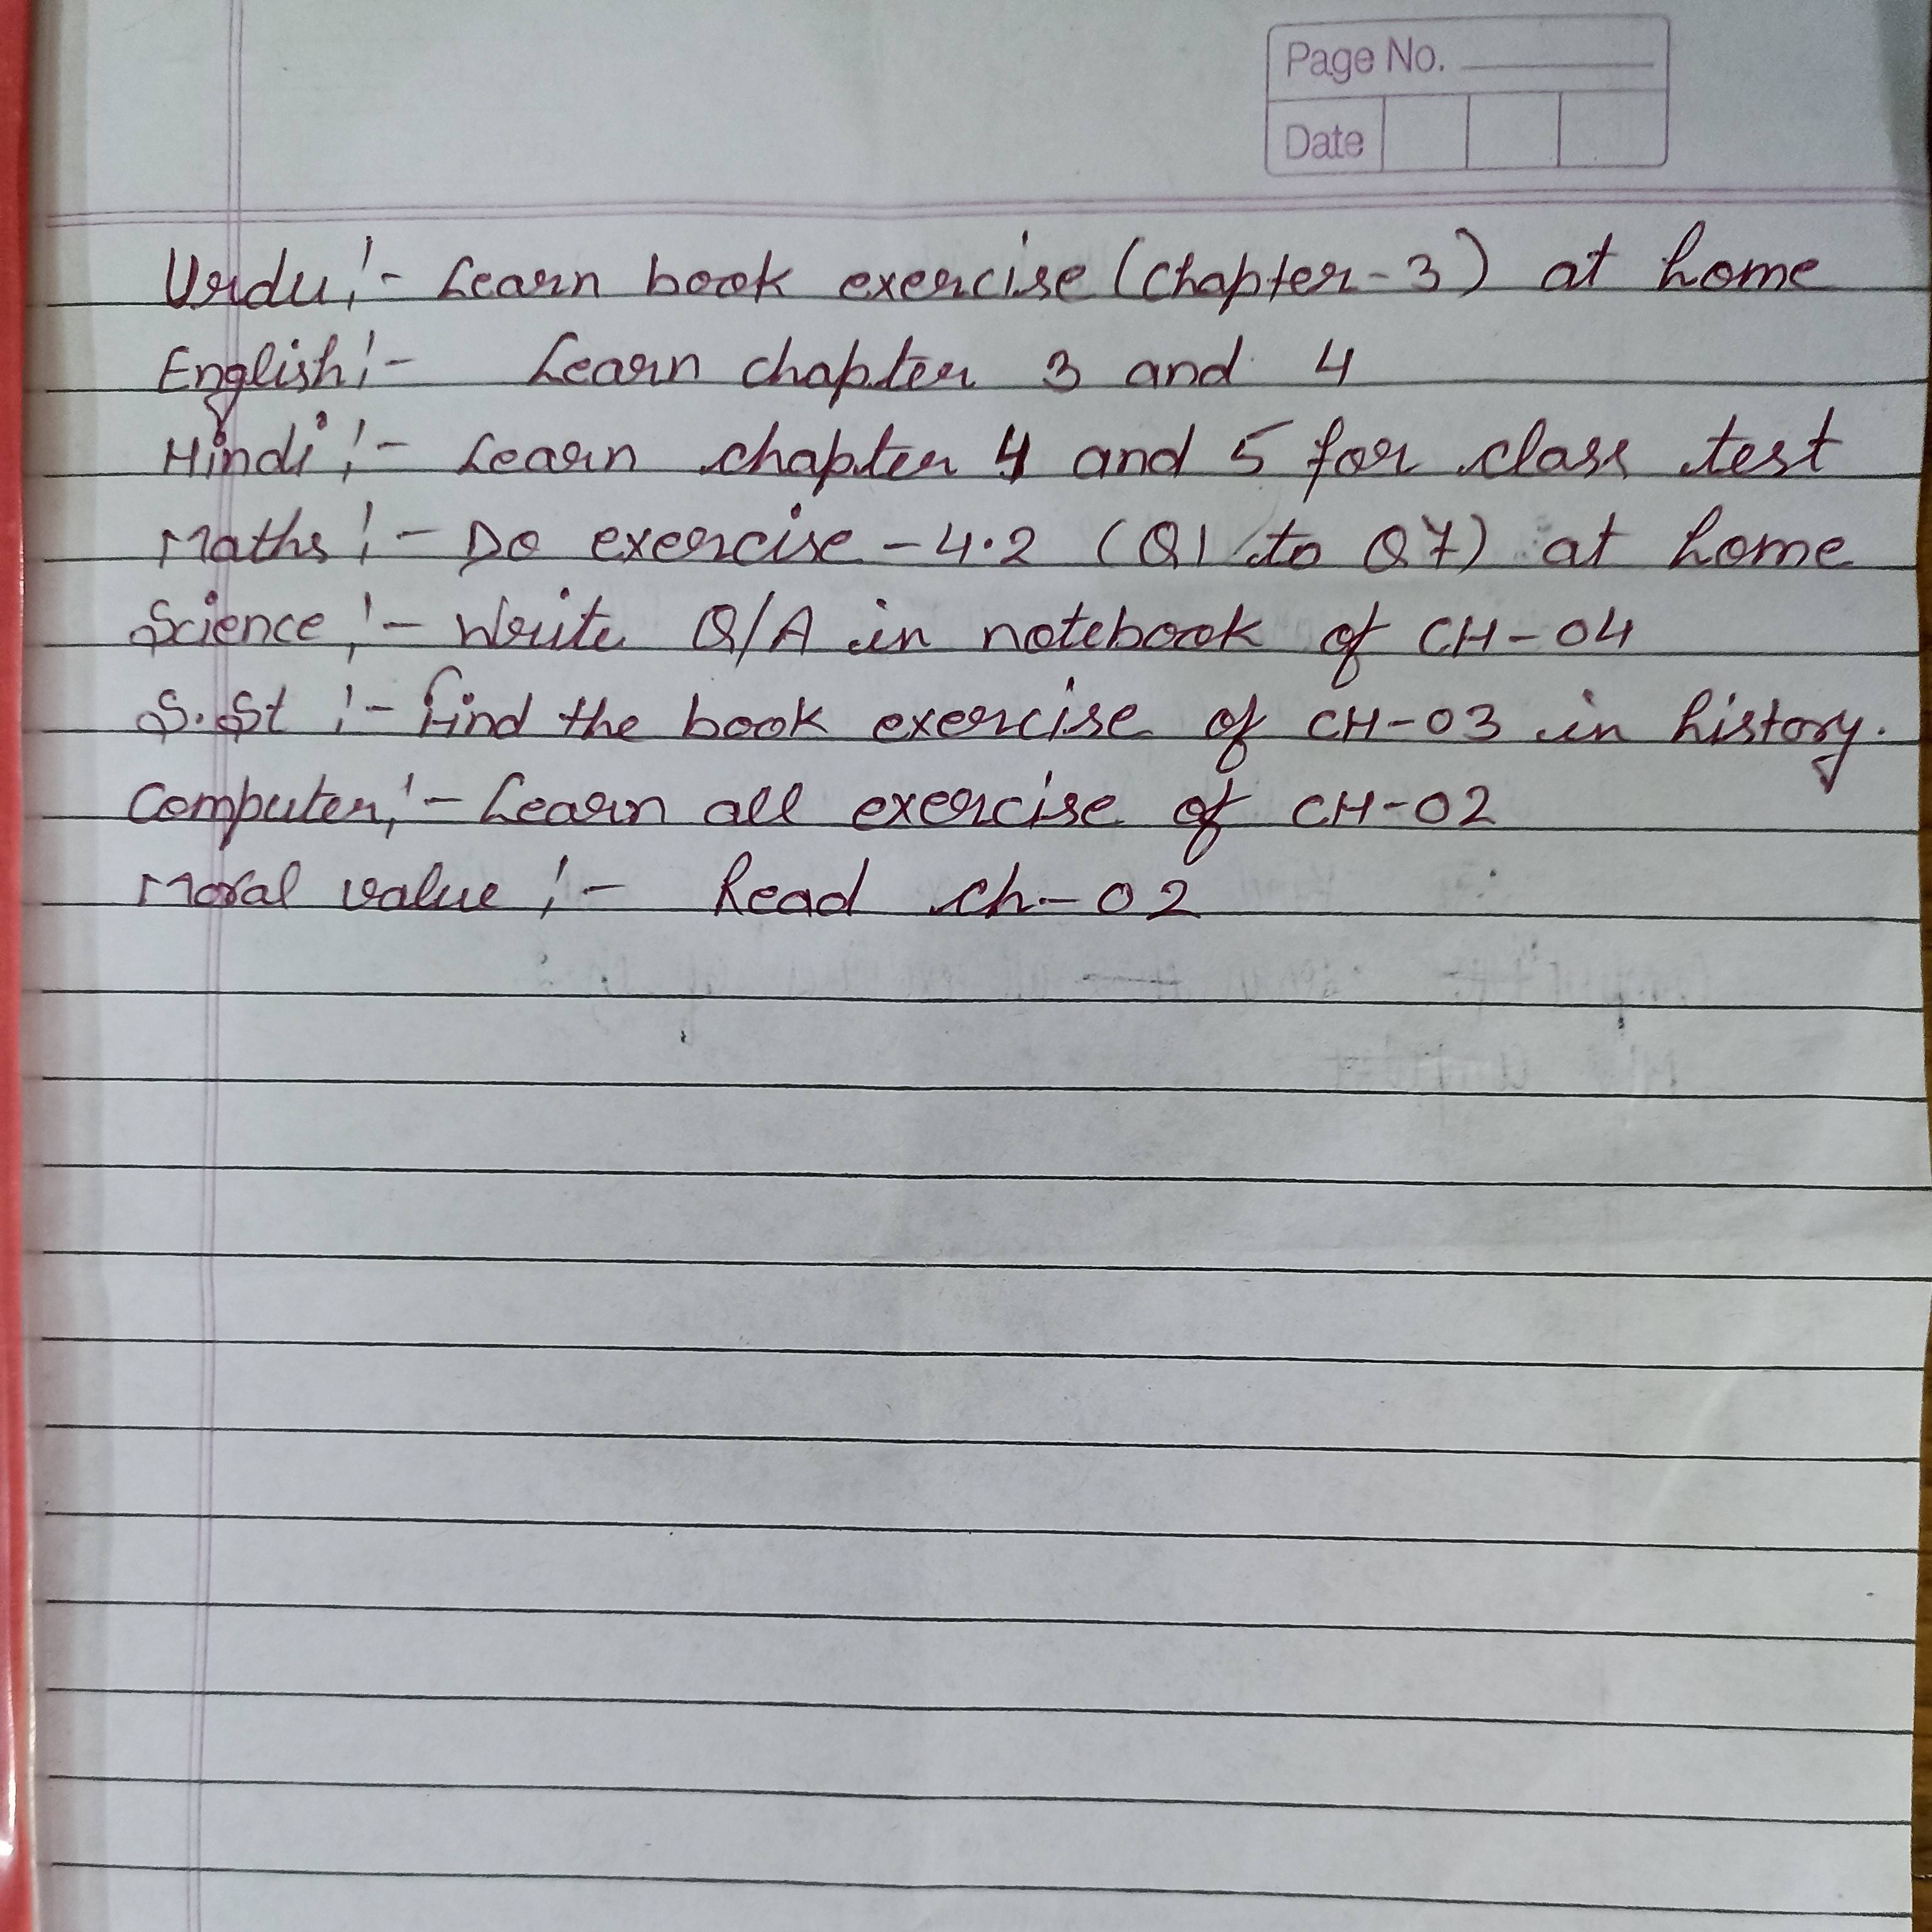 Page No.
Date
Urdu :- Learn book exercise (chapter-3) at home
English :- Learn chapter 3 and 4
Hindi :- Learn chapter 4 and 5 for class test
Maths :- Do exercise - 4.2 (Q1 to Q7) at home
Science :- Write Q/A in notebook of CH-04
S.St :- find the book exercise of CH-03 in history.
Computer :- Learn all exercise of CH-02
Moral value :- Read ch-02